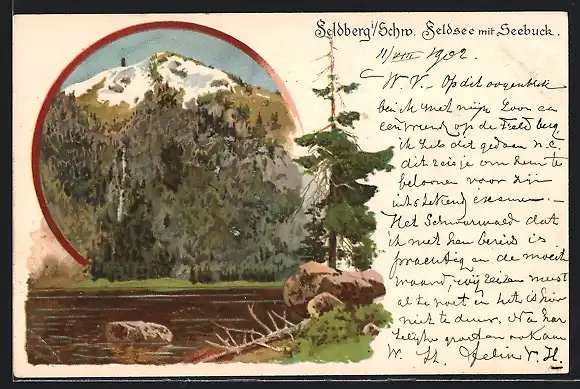 Feldberg i/Schw. Feldsee mit Seebuck.
11/VIII 1902
W. V. Op dit oogenblik
ben ik met mijn Zoon en
een vriend op de Feldberg
ik heb dit gedaan
dit reisje om hem te
beloonen voor zijn
uitstekend examen. —
Het Schwarzwald dat
ik met hen bereis is
prachtig en de moeite
waard, wij reizen meest
al te voet en het is hier
niet te duur. Na har
telijke groeten ook aan
W. H.